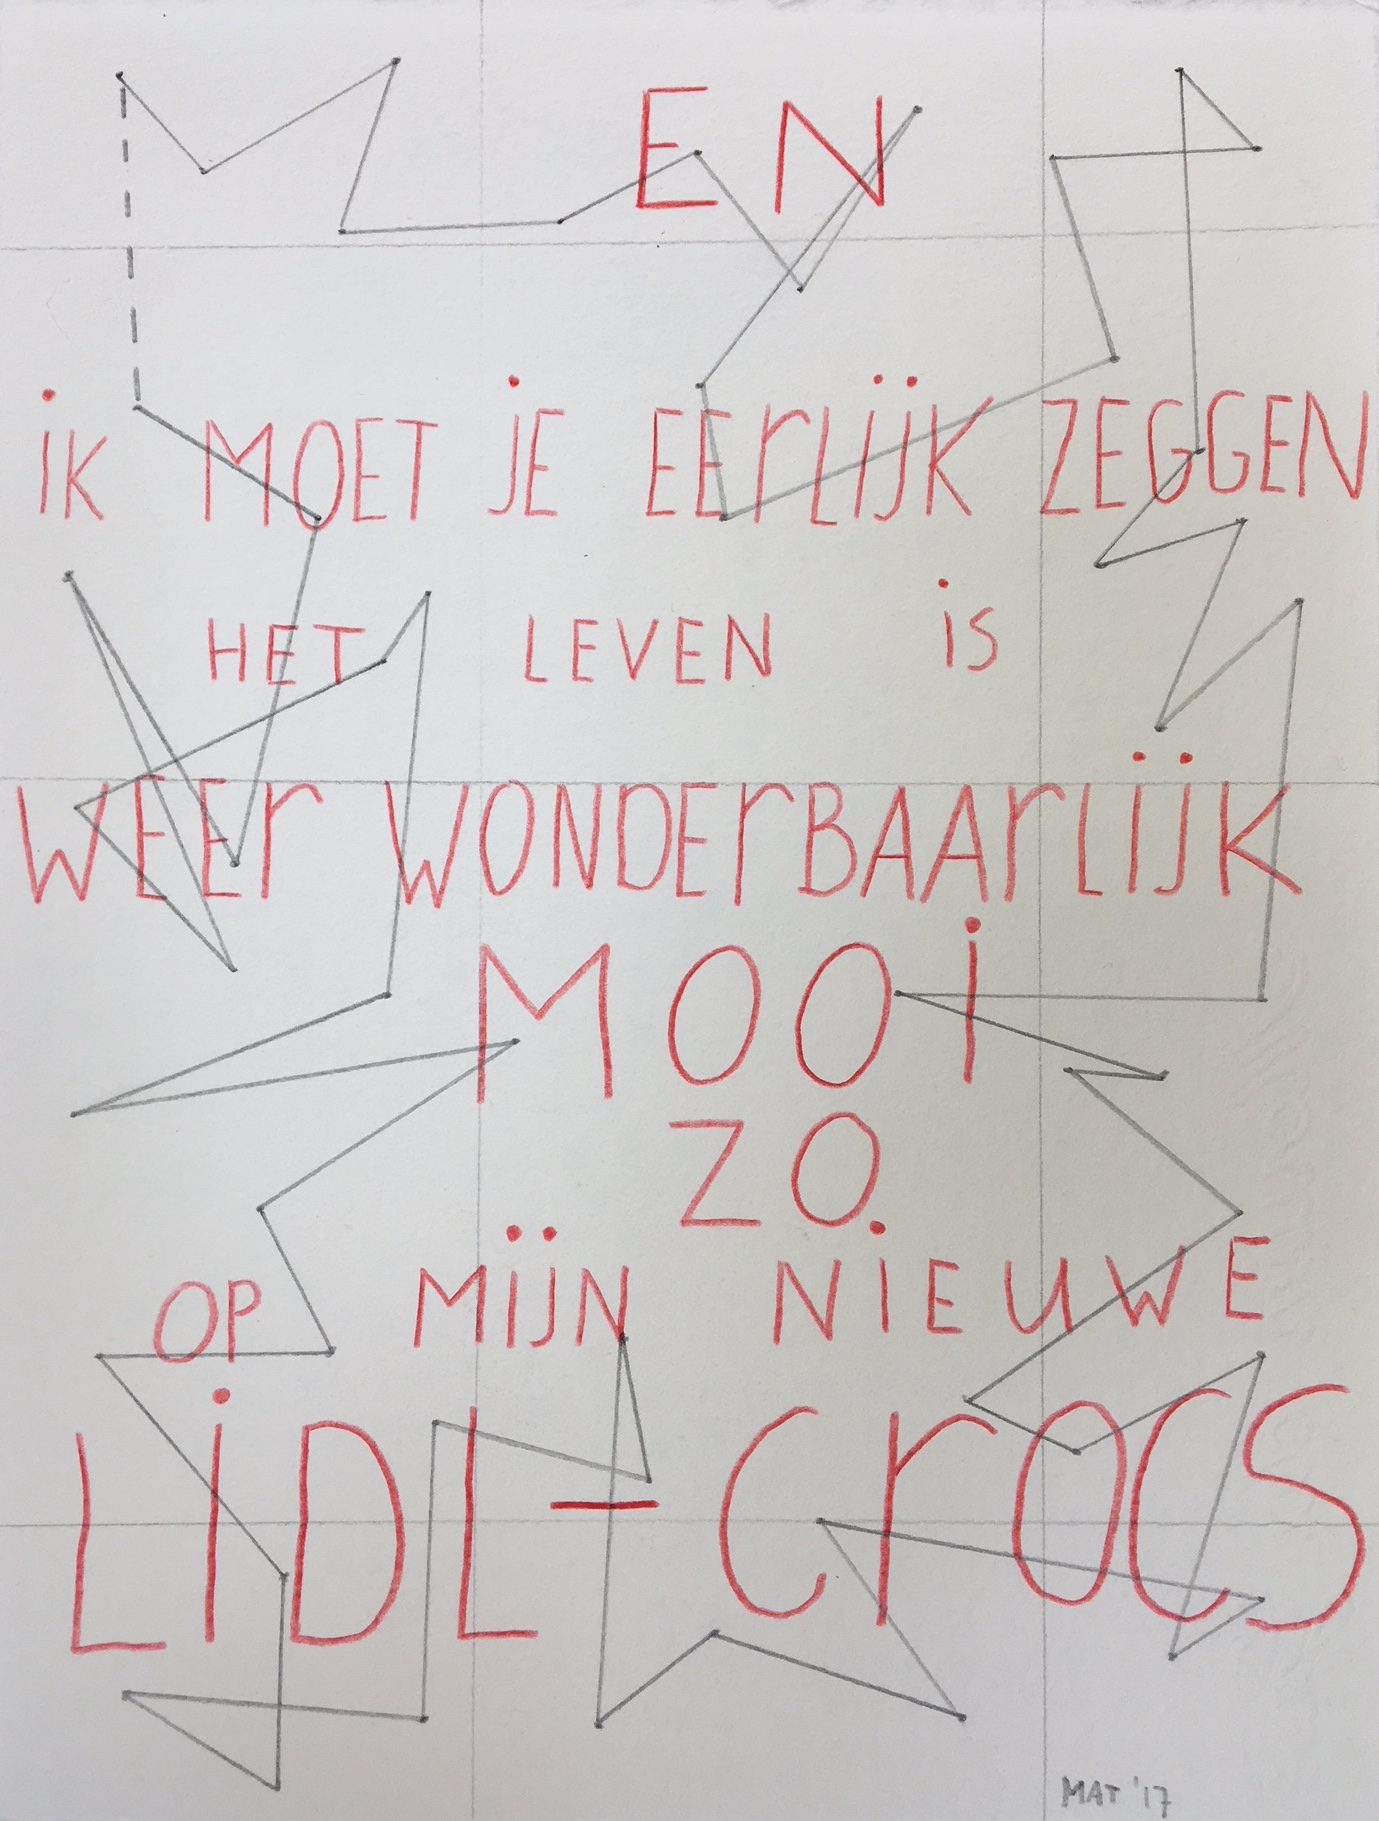 EN
iK MOET jE EErLijK ZEGGEN
HET LEVEN iS
WEEr WONDErBAArLijK
MOOi
ZO
OP MijN NiEUWE
LiDL-CrOCS
MAT '17